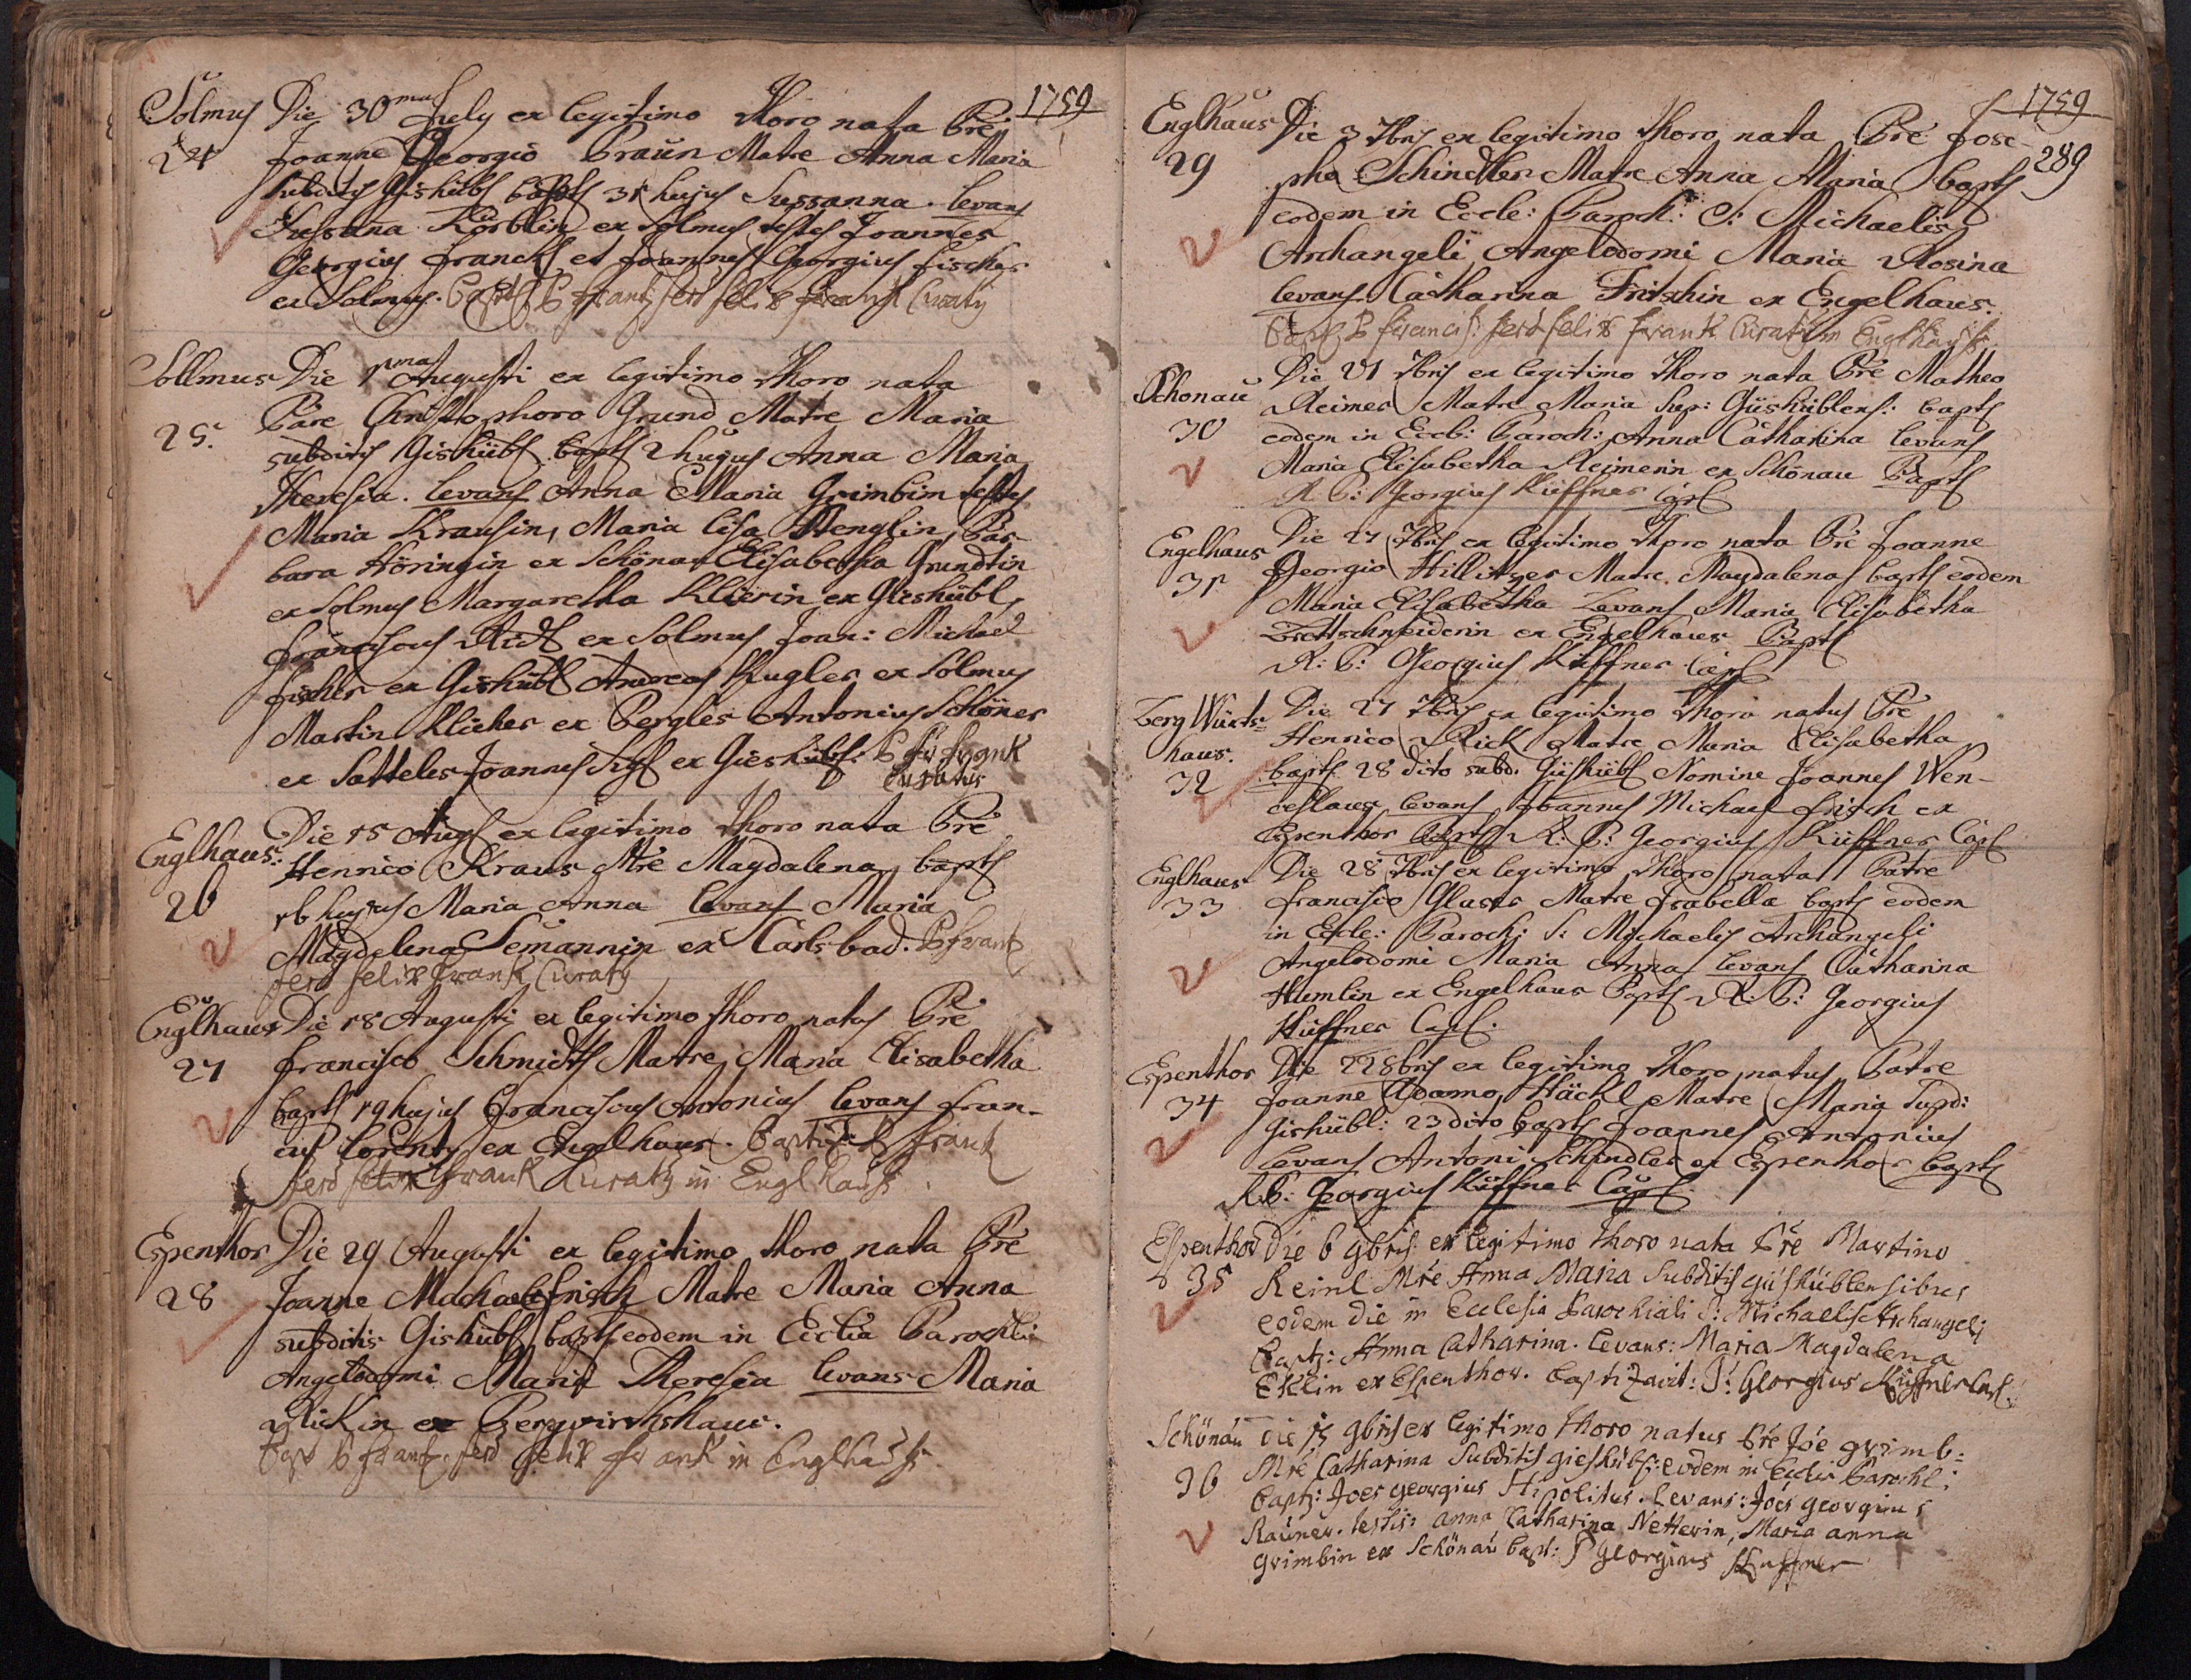 1759
Solmus Die 30ma July ex legitimo thoro nata Pre
24 Joanne Georgio Braun Matre Anna Maria
subditis Gishübl bapts 31 hujus Sussanna. levans
Susana Körblin ex Solmus testes Joannes
Georgius Franck et Joannes Georgius Fischer
ex Solmus. Bapts P Frantz ferd felix frank Curatus
Sollmus Die 1ma Augusti ex legitimo thoro nata
25. Pare Christophoro Grund Matre Maria
subditis Gishübl bapts 2 hujus Anna Maria
Theresia. levans Anna Maria Grimbim testes
Maria Krausin, Maria Lisa Stenglin, Bar-
bara Höringin ex Schönau Elisabetha Grundtin
ex Solmus Margaretha Klierin ex Gieshübl,
Franciscus ex Solmus Joan: Michael
fischer ex Gishübl Andreas Kugler ex Solmus
Martin Klieher ex Bergles Antonius Schöner
ex Satteles Joannes ex Gieshübl: P fr frank
Curatus
Englhaus: Die 15 Aug ex legitimo thoro nata Pre
26 Henrico Kraus Mre Magdalena bapts
16 hujus Maria Anna levans Maria
Magdalena Semannin ex Carlsbad. P frantz
ferd felix frank Curatus
Englhaus Die 18 Augusti ex legitimo thoro natus Pre
27 Francisco Schmidt Matre Maria Elisabetha
bapts 19 hujus Franciscus Antonius levans Fran-
cus Lorentz ex Engelhaus. Baptiz: P frantz
ferd felix frank Curatus in Englhauss.
Espenthor Die 29 Augusti ex legitimo thoro nata Pre
28 Joanne Machael frisch Matre Maria Anna
subditis Gishübl bapts eodem in Eccliä Parochli
Angelodomi Maria Theresia levans Maria
Rickin ex Bergwirthshaus.
Bapt P frantz ferd felix frank in Englhauss.
1759
289
Englhaus Die 3 7bris ex legitimo thoro nata Pre Jose-
29 pho Schindler Matre Anna Maria bapts
eodem in Eccle: Paroch: S: Michaelis
Archangeli Angelodomi Maria Rosina
levans Catharina Fritschin ex Engelhaus.
bapt P francis: ferd felix frank Curatus in Englhauss.
Schonau Die 21 7bris ex legitimo thoro nata Pre Matheo
30 Reimer Matre Maria Sup: Güshüblens: bapts
eodem in Eccl: Paroch: Anna Catharina levans
Maria Elisabetha Reimerin ex Schönau Bapts
R: P: Georgius Küffner Cap
Engelhaus Die 27 7bris ex legitimo thoro nata Pre Joanne
31 Georgio Hillitzer Matre Magdalena bapts eodem
Maria Elisabetha Levans Maria Elisabetha
Brettschneiderin ex Engelhaus Bapts
R: P: Georgius Küffner Cap
Berg Würts- Die 27 7bris ex legitimo thoro natus Pre
haus. Henrico Rick Matre Maria Elisabetha
32 bapts 28 dito subd. Güshübl Nomine Joannes Wen-
ceslaus levans Joannes Michael frisch ex
Espenthor Bapts R: P: Georgius Küffner Cap
Englhaus Die 28 7bris ex legitimo thoro nata Patre
33 Francisco Glaser Matre Isabella bapts eodem
in Eccle: Paroch: S: Michaelis Archangeli
Angelodomi Maria Anna levans Catharina
Humlin ex Engelhaus Bapts R: P: Georgius
Küffner Cap.
Espenthor Die 22 8bris ex legitimo thoro natus Patre
34 Joanne Adamo Häckl Matre Maria Supd:
Gishübl: 23 dito bapts Joannes Antonius
levans Antoni Schindler ex Espenthor bapts
R.P: Georgius Küffner Cap
Espenthor Die 6 9bris: ex legitimo thoro nata Pre Martino
35 Reinl Mre Anna Maria Subditis güshüblensibus
eodem die in Ecclesia Parochiali S: Michaelis Archangeli
Baptz: Anna Catharina. levans: Maria Magdalena
Eklin ex Espenthor. baptizavit: P: Georgius Küffner Cap.
Schönau die 15 9bris ex legitimo thoro natus Pre Joe grimb:
36 Mre Catharina Subditis gieshübl: eodem in Eccliä Parochl:
baptz: Joes georgius Hipolitus. Levans: Joes georgius
Rauner. testis: anna Catharina Netterin, Maria anna
grimbin ex Schönau bapt: P georgius Küffner